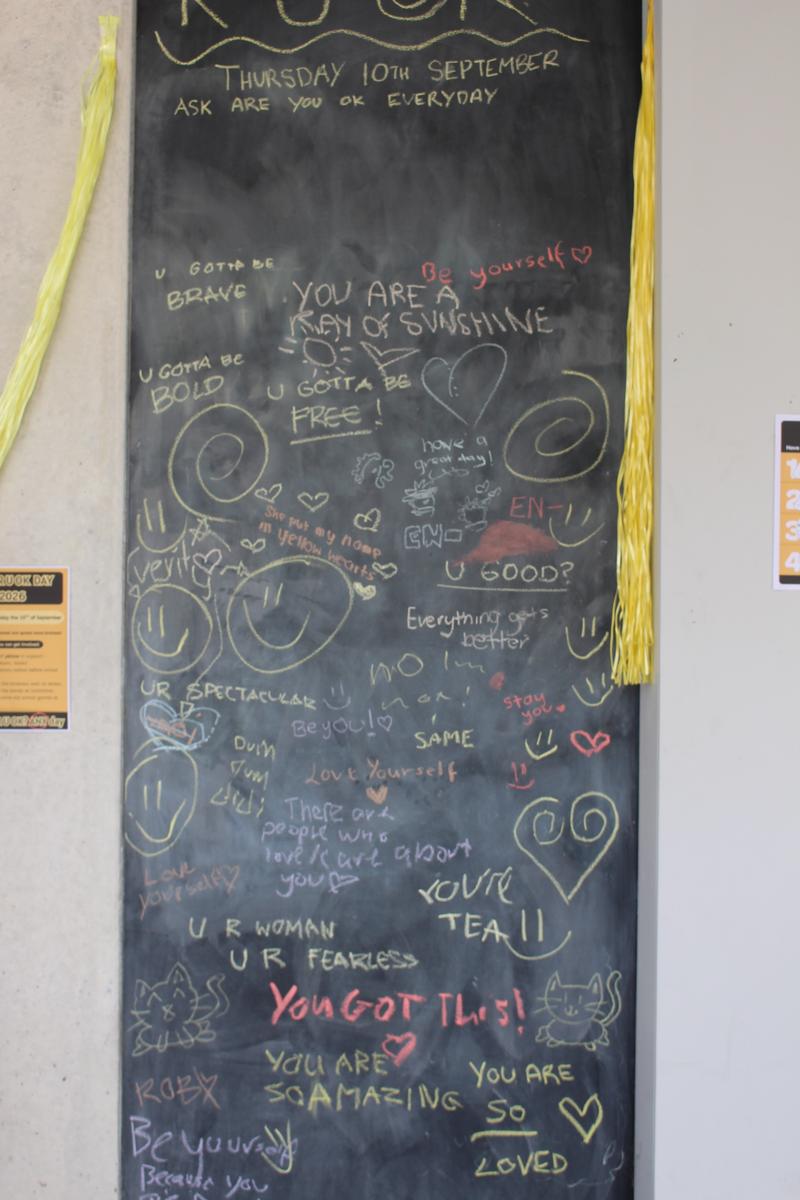 R U O K
THURSDAY 10TH SEPTEMBER
ASK ARE YOU OK EVERYDAY
U GOTTA BE
BRAVE
Be yourself
YOU ARE A
RAY OF SUNSHINE
U GOTTA BE
BOLD
U GOTTA BE
FREE!
have a
great day!
She put my name
in yellow hearts
EN-
EN-
U GOOD?
Verity
Everything gets
better
NO Im
UR SPECTACULAR
Be you!
stay
you
SAME
DUM
DUM
Love Yourself
There are
people who
love/care about
you
Love
yourself
YOU'RE
TEA
U R WOMAN
U R FEARLESS
You GOT This!
YOU ARE
SO AMAZING
YOU ARE
SO
LOVED
ROBX
Be yourself
Because you
R U OK DAY
2026
R U OK? ANY day
Have
1
2
3
4